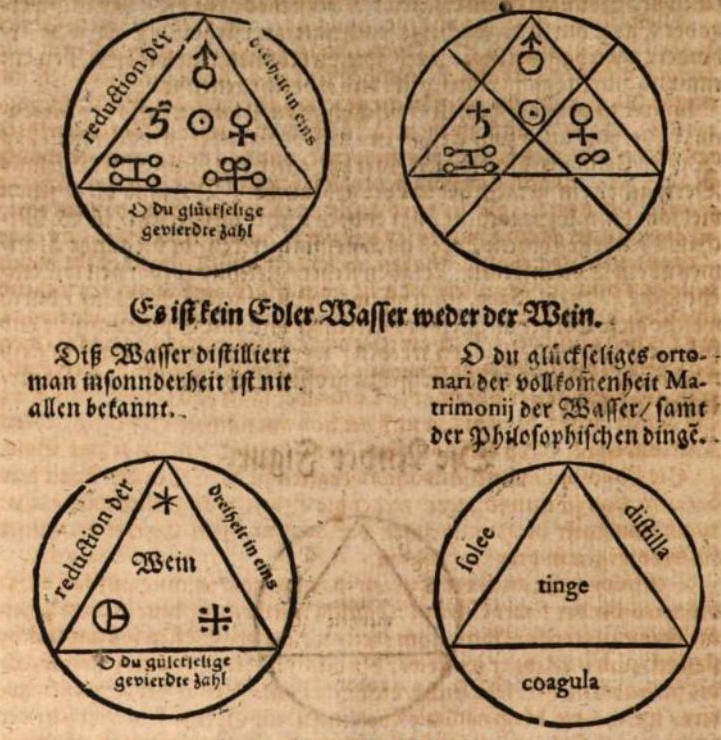 reduction der
dreiheit in eins
O du glückselige
gevierdte zahl
Es ist kein Edler Wasser weder der Wein.
Diß Wasser distilliert
man insonnderheit ist nit
allen bekannt.
O du glückseliges orto-
nari der vollkom̃enheit Ma-
trimonij der Wasser/ sam̃t
der Philosophischen dingẽ.
reduction der
dreiheit in eins
Wein
O du gülckselige
gevierdte zahl
solvee
distilla
tinge
coagula